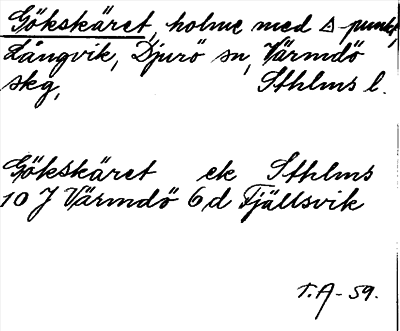 Gökskäret, holme med △ punkt,
Långvik, Djurö sn, Värmdö
skg, Sthlms l.
Gökskäret ek Sthlms
10 J Värmdö 6 d Fjällsvik
T.A - 59.